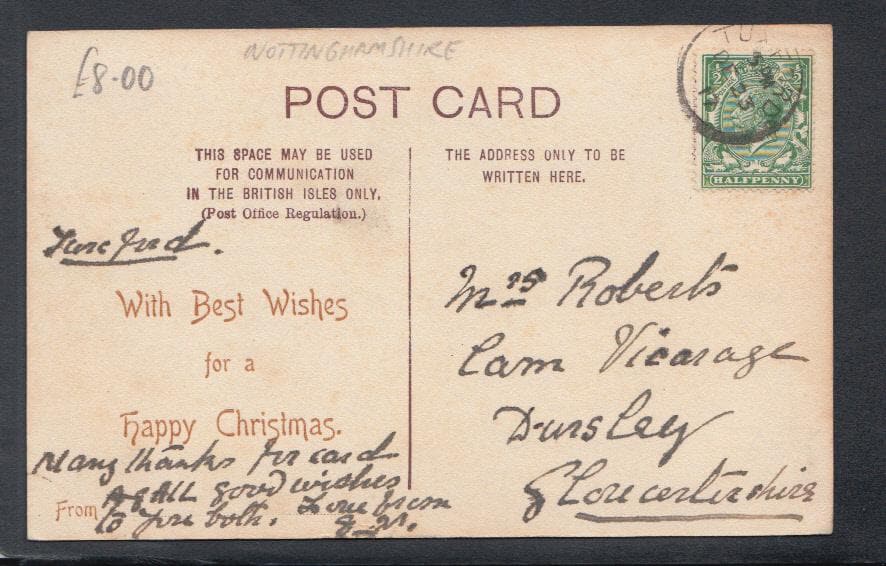 £8-00
NOTTINGHAMSHIRE
POST CARD
THIS SPACE MAY BE USED
FOR COMMUNICATION
IN THE BRITISH ISLES ONLY.
(Post Office Regulation.)
THE ADDRESS ONLY TO BE
WRITTEN HERE.
HALFPENNY
With Best Wishes
for a
Happy Christmas.
Many thanks for card
& ALL good wishes
From to you both. Love from
Mrs Roberts
Cam Vicarage
Dursley
Gloucestershire